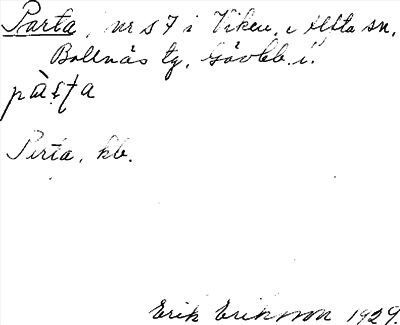 Parta, nr s 7 i Viken, i Alfta sn,
Bollnäs tg, Gävleb. l.
pàșța
Perta, kb.
Erik Eriksson 1929.